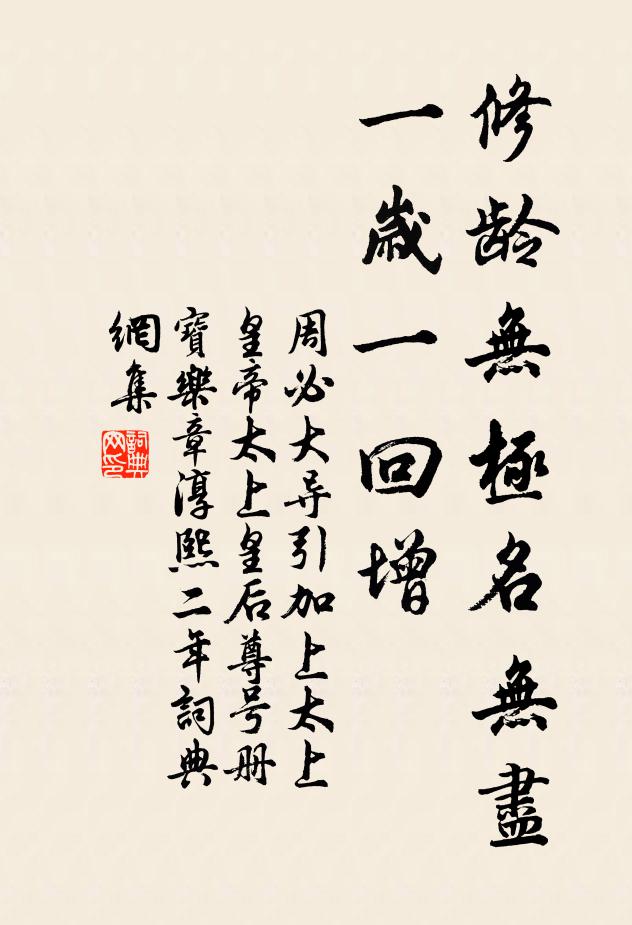 修龄無極名無盡
一歲一回增
周必大导引加上太上
皇帝太上皇后尊号册
寶樂章淳熙二年詞典
網集
詞典網印